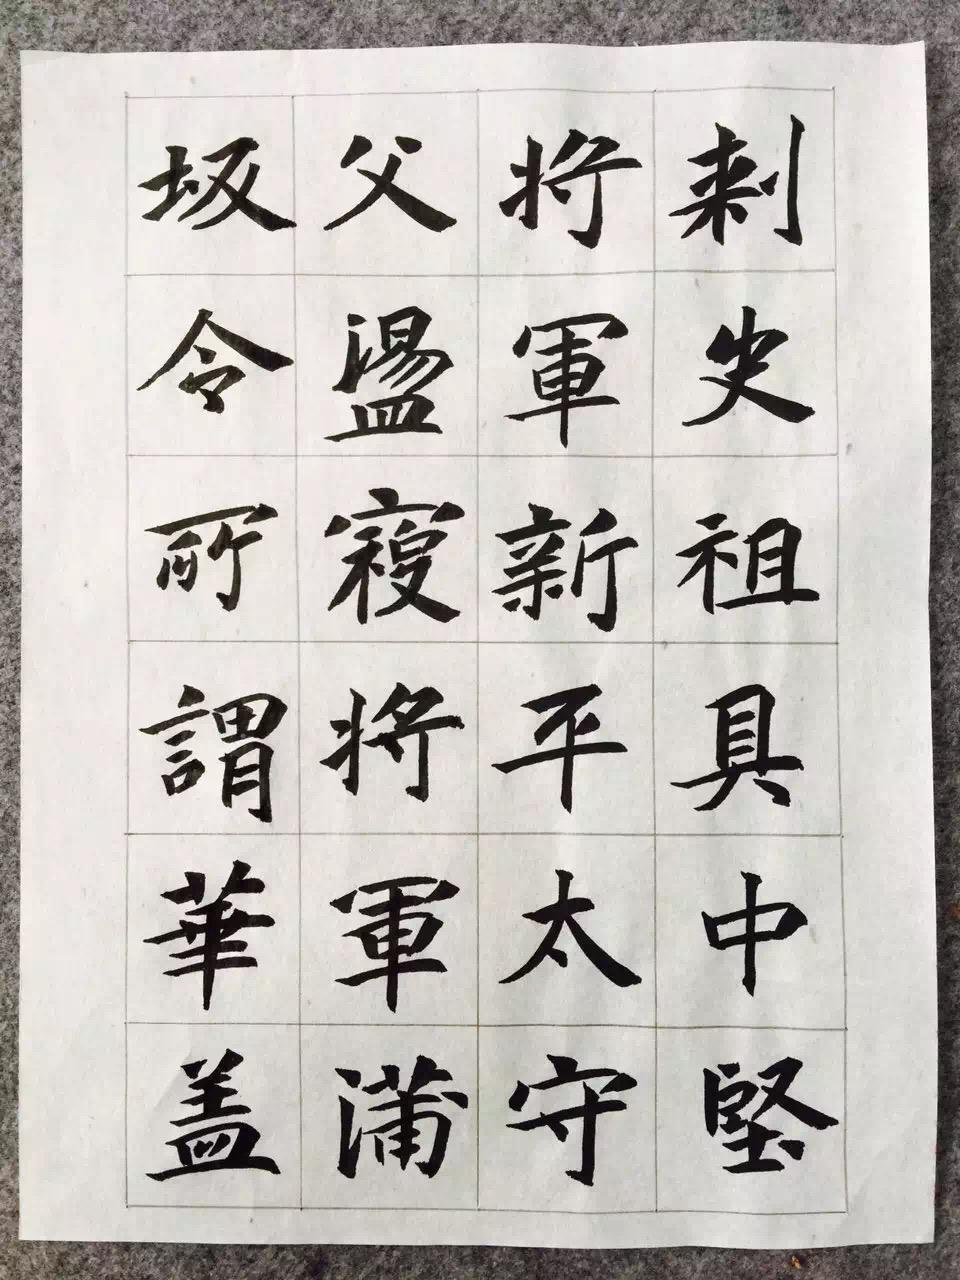 刺史祖具中堅
將軍新平太守
父盪寇將軍蒲
坂令所謂華蓋